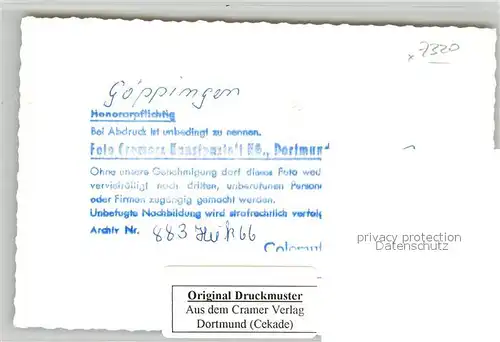 * 7320
Göppingen
Honorarpflichtig
Bei Abdruck ist unbedingt zu nennen.
Foto Cramers Kunstanstalt KG., Dortmund
Ohne unsere Genehmigung darf dieses Foto wed
vervielfältigt noch dritten, unberufenen Persone
oder Firmen zugängig gemacht werden.
Unbefugte Nachbildung wird strafrechtlich verfolg
Archiv Nr. 883
privacy protection
COPYRIGHT
Original Druckmuster
Aus dem Cramer Verlag
Dortmund (Cekade)